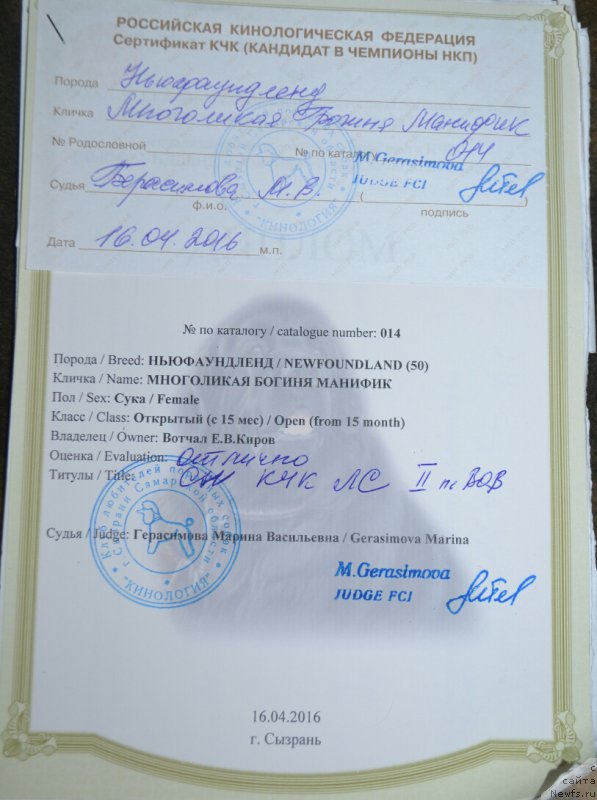 РОССИЙСКАЯ КИНОЛОГИЧЕСКАЯ ФЕДЕРАЦИЯ
Сертификат КЧК (КАНДИДАТ В ЧЕМПИОНЫ НКП)
Порода Ньюфаундленд
Кличка Многоликая Богиня Манифик
№ Родословной № по каталогу 014
M.Gerasimova
JUDGE FCI
Судья Герасимова М.В. ( )
ф.и.о. подпись
Дата 16.04.2016 м.п.
№ по каталогу / catalogue number: 014
Порода / Breed: НЬЮФАУНДЛЕНД / NEWFOUNDLAND (50)
Кличка / Name: МНОГОЛИКАЯ БОГИНЯ МАНИФИК
Пол / Sex: Сука / Female
Класс / Class: Открытый (с 15 мес) / Open (from 15 month)
Владелец / Owner: Вотчал Е.В.Киров
Оценка / Evaluation: отлично
Титулы / Title: КЧК ЛС II ПК BOB
Судья / Judge: Герасимова Марина Васильевна / Gerasimova Marina
M.Gerasimova
JUDGE FCI
Клуб любителей породистых собак
г.Сызрани Самарской области
"КИНОЛОГИЯ"
16.04.2016
г. Сызрань
с сайта
Newfs.ru